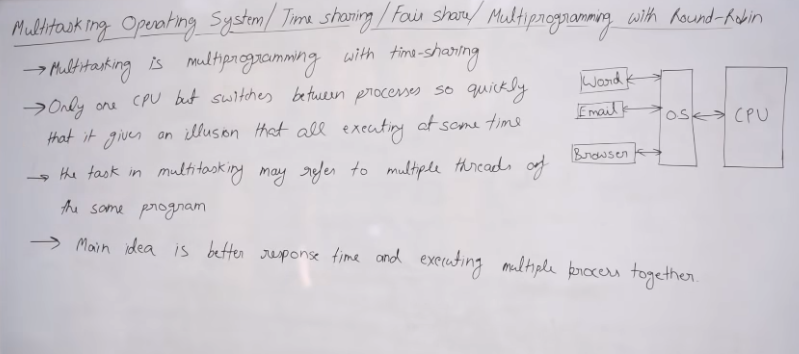 Multitasking Operating System/ Time sharing / Fair share/ Multiprogramming with Round-Robin
→ Multitasking is multiprogramming with time-sharing
→ Only one CPU but switches between processes so quickly
that it gives an illusion that all executing at same time
→ the task in multitasking may refer to multiple threads of
the same program
→ Main idea is better response time and executing multiple process together.
Word
Email
Browser
OS
CPU